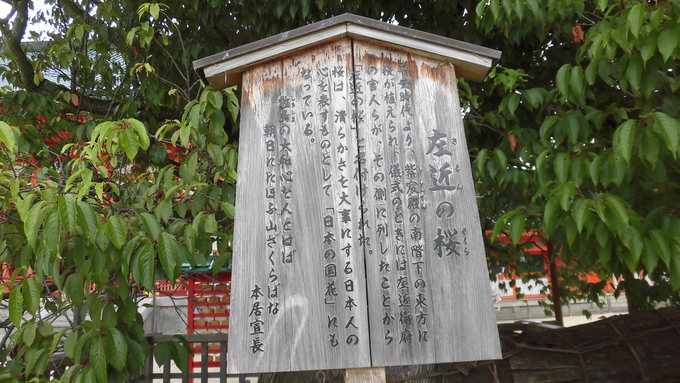 左近の桜
さこん
さくら
平安時代より、紫宸殿の南階下の東方に
桜が植えられ、儀式のときには左近衛府
の官人らが、その側に列したことから
「左近の桜」と名付けられた。
桜は、清らかさを大事にする日本人の
心を表すものとして「日本の国花」にも
なっている。
敷島の大和心を人とはば
朝日ににほふ山ざくらばな
本居宣長